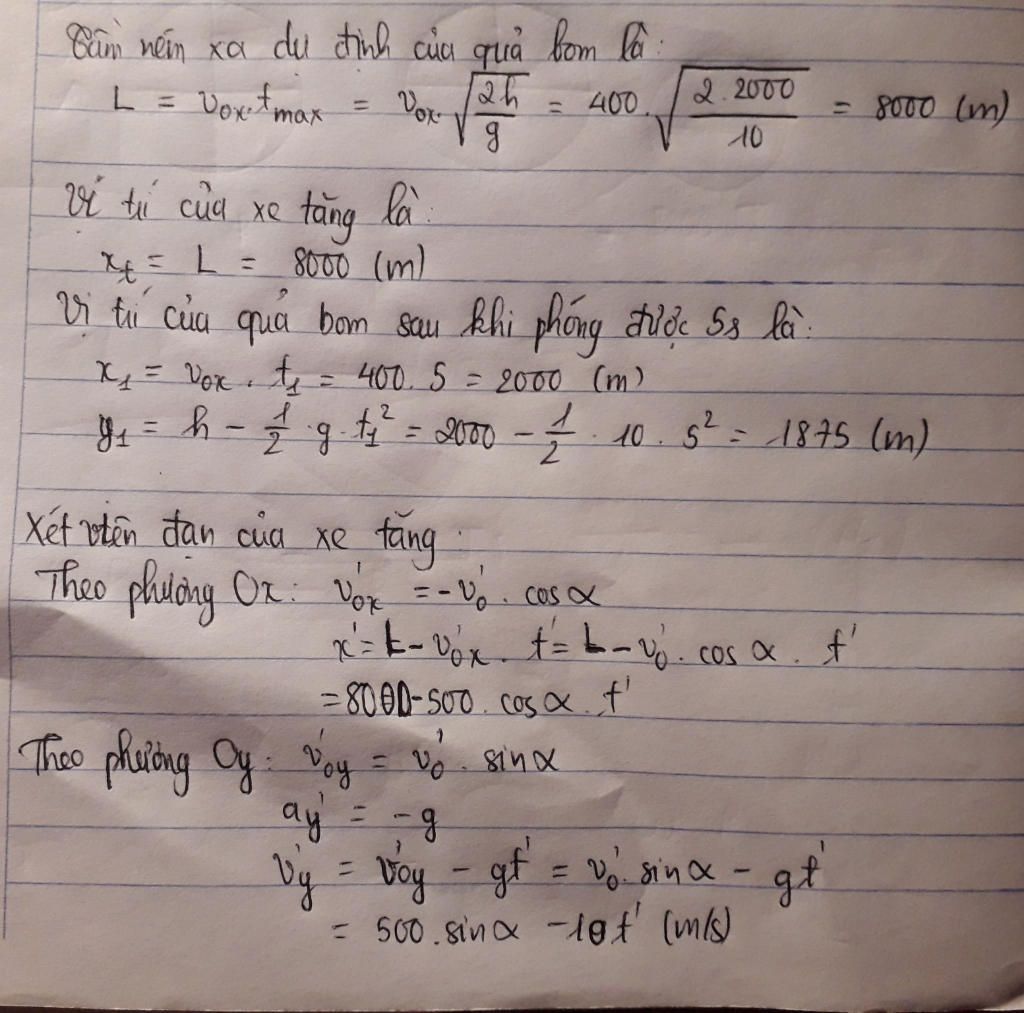 Tầm ném xa dự định của quả bom là:
L = v₀ₓ.t_max = v₀ₓ.√(2h/g) = 400.√(2.2000/10) = 8000 (m)
Vị trí của xe tăng là:
x_t = L = 8000 (m)
Vị trí của quả bom sau khi phóng được 5s là:
x₁ = v₀ₓ . t₁ = 400. 5 = 2000 (m)
y₁ = h - 1/2 . g . t₁² = 2000 - 1/2 . 10 . 5² = 1875 (m)
Xét viên đạn của xe tăng :
Theo phương Ox: v'₀ₓ = -v'₀ . cosα
x' = L - v'₀ₓ . t' = L - v'₀ . cos α . t'
= 8000 - 500 . cosα . t'
Theo phương Oy: v'₀y = v'₀ . sinα
ay' = -g
v'y = v'₀y - gt' = v'₀ . sinα - gt'
= 500 . sinα - 10t' (m/s)